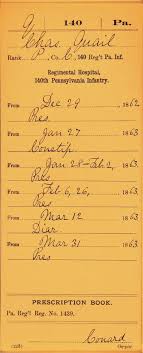 Q 140 Pa.
Chas. Quail
Rank P, Co. C, 140 Reg't Pa. Inf.
Regimental Hospital,
140th Pennsylvania Infantry.
From Dec 29, 1862
Pres
From Jan 27, 1863
Constip
From Jan 28-Feb 2, 1863
Pres
From Feb 6, 26, 1863
Pres
From Mar 12, 1863
Diar
From Mar 31, 1863
Pres
PRESCRIPTION BOOK.
Pa. Reg't Reg. No. 1439.
Conard
Copyist.